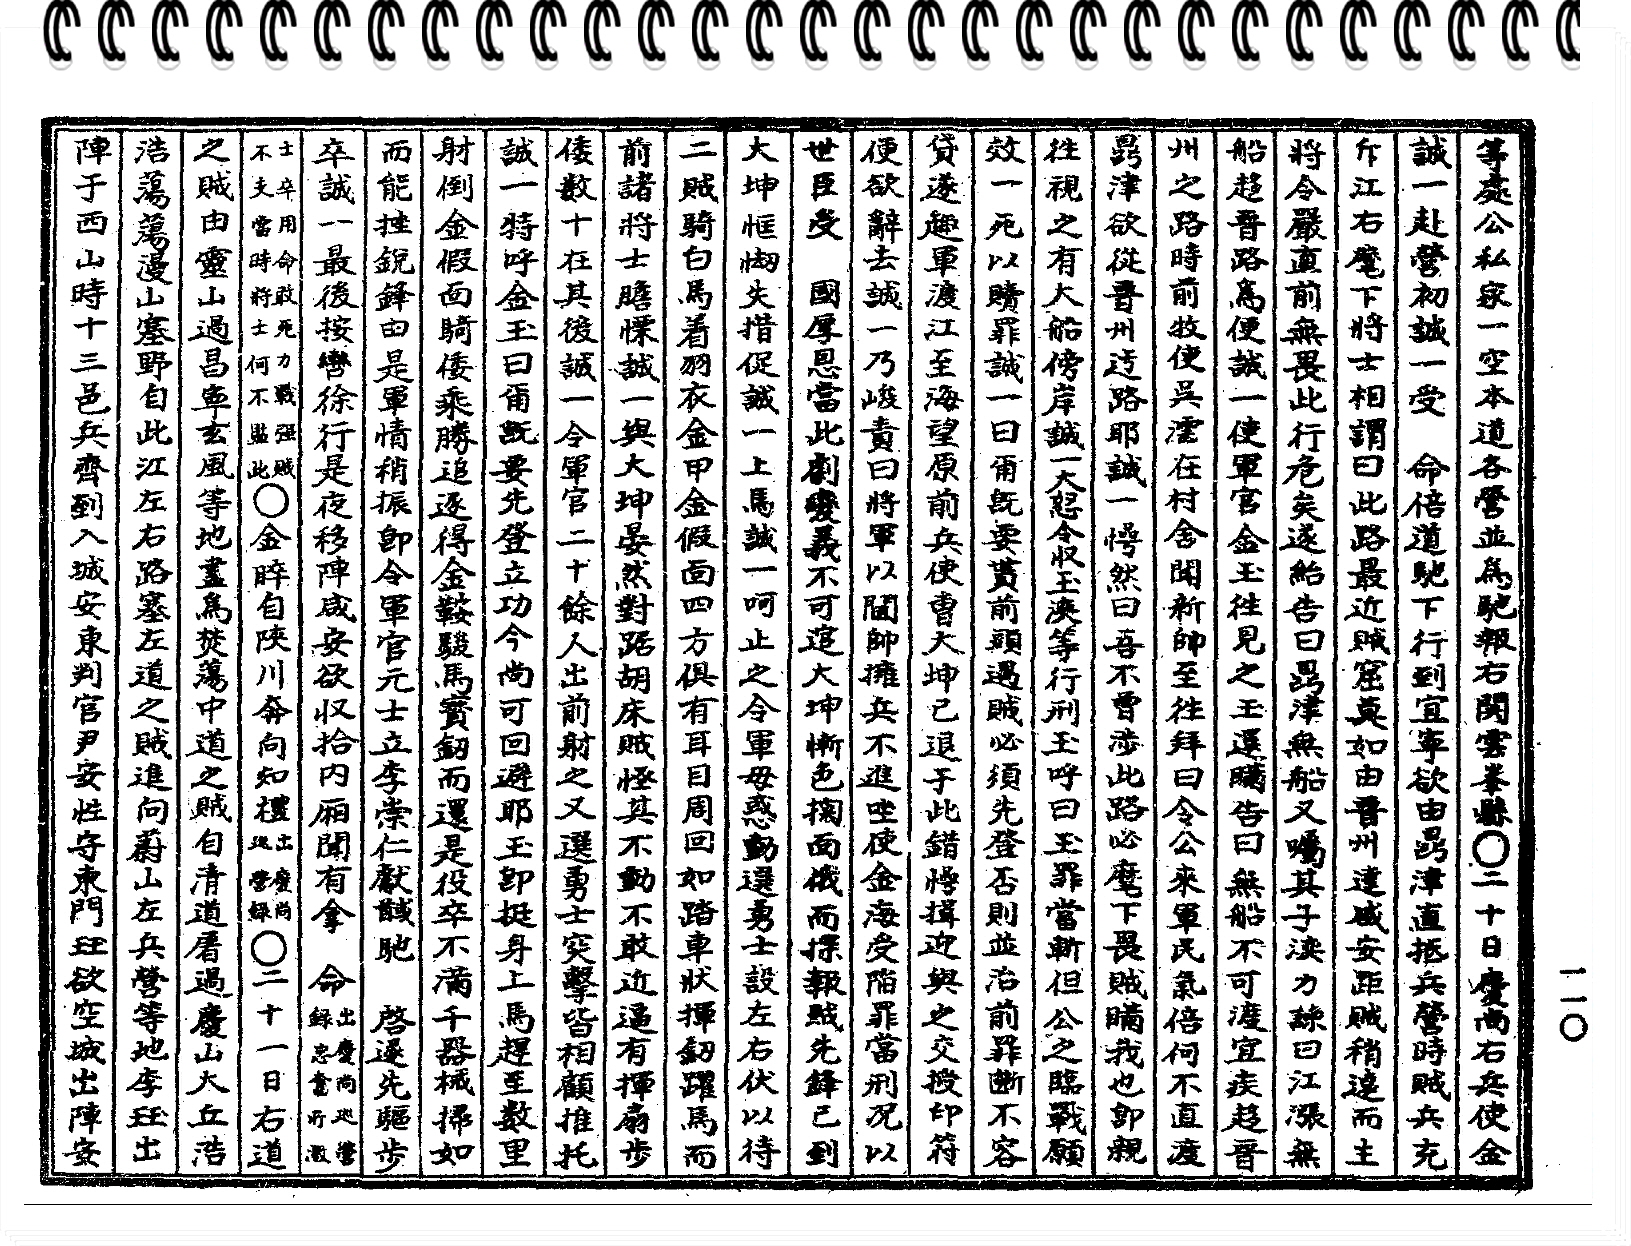 等處公私家一空本道各營並爲馳報右関雲峯縣〇二十日慶尚右兵使金
誠一赴營初誠一受 命倍道馳下行到宜寧欲由鼎津直抵兵營時賊兵充
斥江右麾下將士相謂曰此路最近賊窟莫如由晋州達咸安距賊稍遠而主
將令嚴直前無畏此行危矣遂紿告曰鼎津無船又囑其子浹力諫曰江漲無
船趍晋路爲便誠一使軍官金玉往見之玉還瞞告曰無船不可渡宜疾趍晋
州之路時前牧使吳澐在村舍聞新帥至徃拜曰令公來軍民氣倍何不直渡
鼎津欲從晋州迂路耶誠一愕然曰吾不曾渉此路必麾下畏賊瞞我也卽親
徃視之有大船傍岸誠一大怒令収玉浹等行刑玉呼曰玉罪當斬但公之臨戰願
效一死以贖罪誠一曰甭旣要貰前頭遇賊必須先登否則並治前罪斷不容
貸遂趣軍渡江至海望原前兵使曺大坤已退于此錯愕揖迎與之交授印符
便欲辭去誠一乃峻責曰將軍以閫帥擁兵不進坐使金海受陷罪當刑况以
世臣受 國厚恩當此劇變義不可逭大坤慚色掬面俄而探報賊先鋒已到
大坤恇㤼失措促誠一上馬誠一呵止之令軍毋惑動還勇士設左右伏以待
二賊騎白馬着羽衣金甲金假面四方俱有耳目周回如踏車狀揮釰躍馬而
前諸將士膽慄誠一與大坤晏然對踞胡床賊怪其不動不敢近逼有揮扇步
倭数十在其後誠一令軍官二十餘人出前射之又選勇士突擊皆相顧推托
誠一特呼金玉曰甭旣要先登立功今尚可回避耶玉卽挺身上馬趕至数里
射倒金假面騎倭乘勝追逐得金鞍駿馬寳釰而還是役卒不滿千器械掃如
而能挫銳鋒由是軍情稍振卽令軍官元士立李崇仁獻馘馳 啓遂先驅步
卒誠一最後按轡徐行是夜移陣咸安欲収拾内廂聞有拿 命出慶尚巡營錄忠奮所激
士卒用命敢死力戰强賊不支當時將士何不監此〇金睟自陜川奔向知禮出慶尚巡營錄〇二十一日右道
之賊由靈山過昌寧玄風等地盡爲焚蕩中道之賊自清道屠過慶山大丘浩
浩蕩蕩漫山塞野自此江左右路塞左道之賊進向蔚山左兵營等地李珏出
陣于西山時十三邑兵齊到入城安東判官尹安性守東門珏欲空城出陣安
一一〇